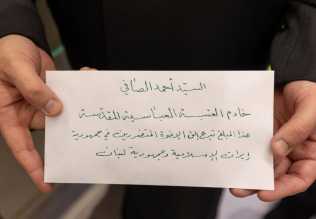 السيد أحمد الصافي
خادم العتبة العباسية المقدسة
هذا المبلغ تبرع الى الاخوة المتضررين في جمهورية
إيران الإسلامية وجمهورية لبنان